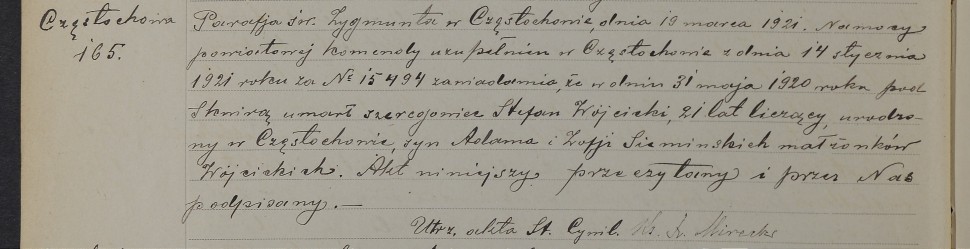 Częstochowa
165.
Parafja św. Zygmunta w Częstochowie, dnia 19 marca 1921. Na mocy
powiatowej komendy uzupełnień w Częstochowie z dnia 14 stycznia
1921 roku za № 15494 zawiadamia, że w dniu 31 maja 1920 roku pod
Skwirą umarł szeregowiec Stefan Wójcicki, 21 lat liczący, urodzo-
ny w Częstochowie, syn Adama i Zofji Siemińskich małżonków
Wójcickich. Akt niniejszy przeczytany i przez Nas
podpisany. —
Utrz. akta St. Cywil. Ks. Mirecki